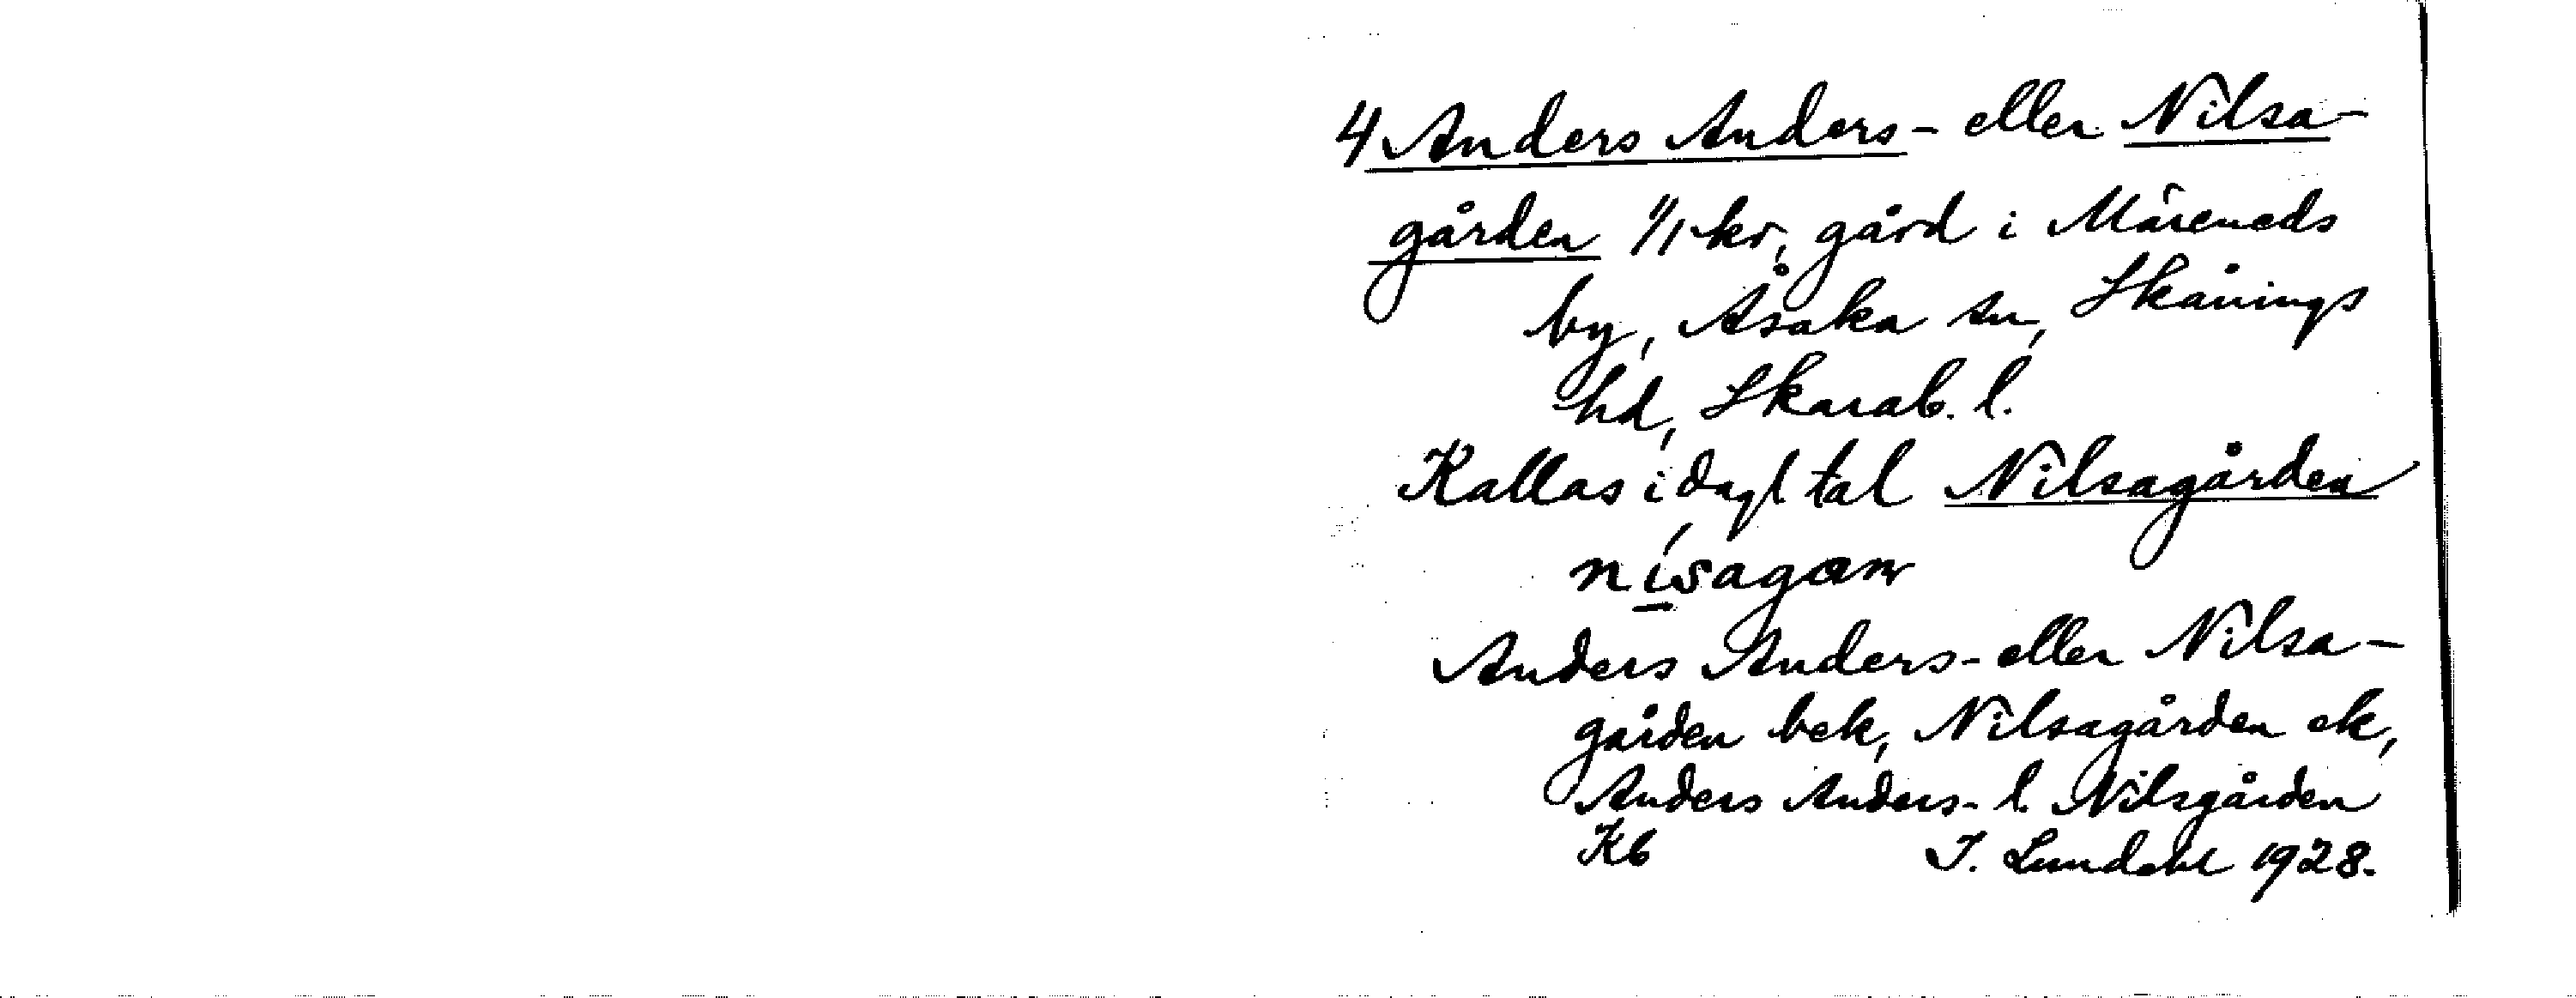 4 Anders Anders- eller Nilsa-
gården 1/1 kr, gård i Märeneds
by, Åsaka sn, Skånings
hd, Skarab. l.
Kallas i dagl tal Nilsagården
nísagan
Anders Anders- eller Nilsa-
gården bek, Nilsagården ek,
Anders Anders- l. Nilsgården
Kb I. Lundahl 1928.